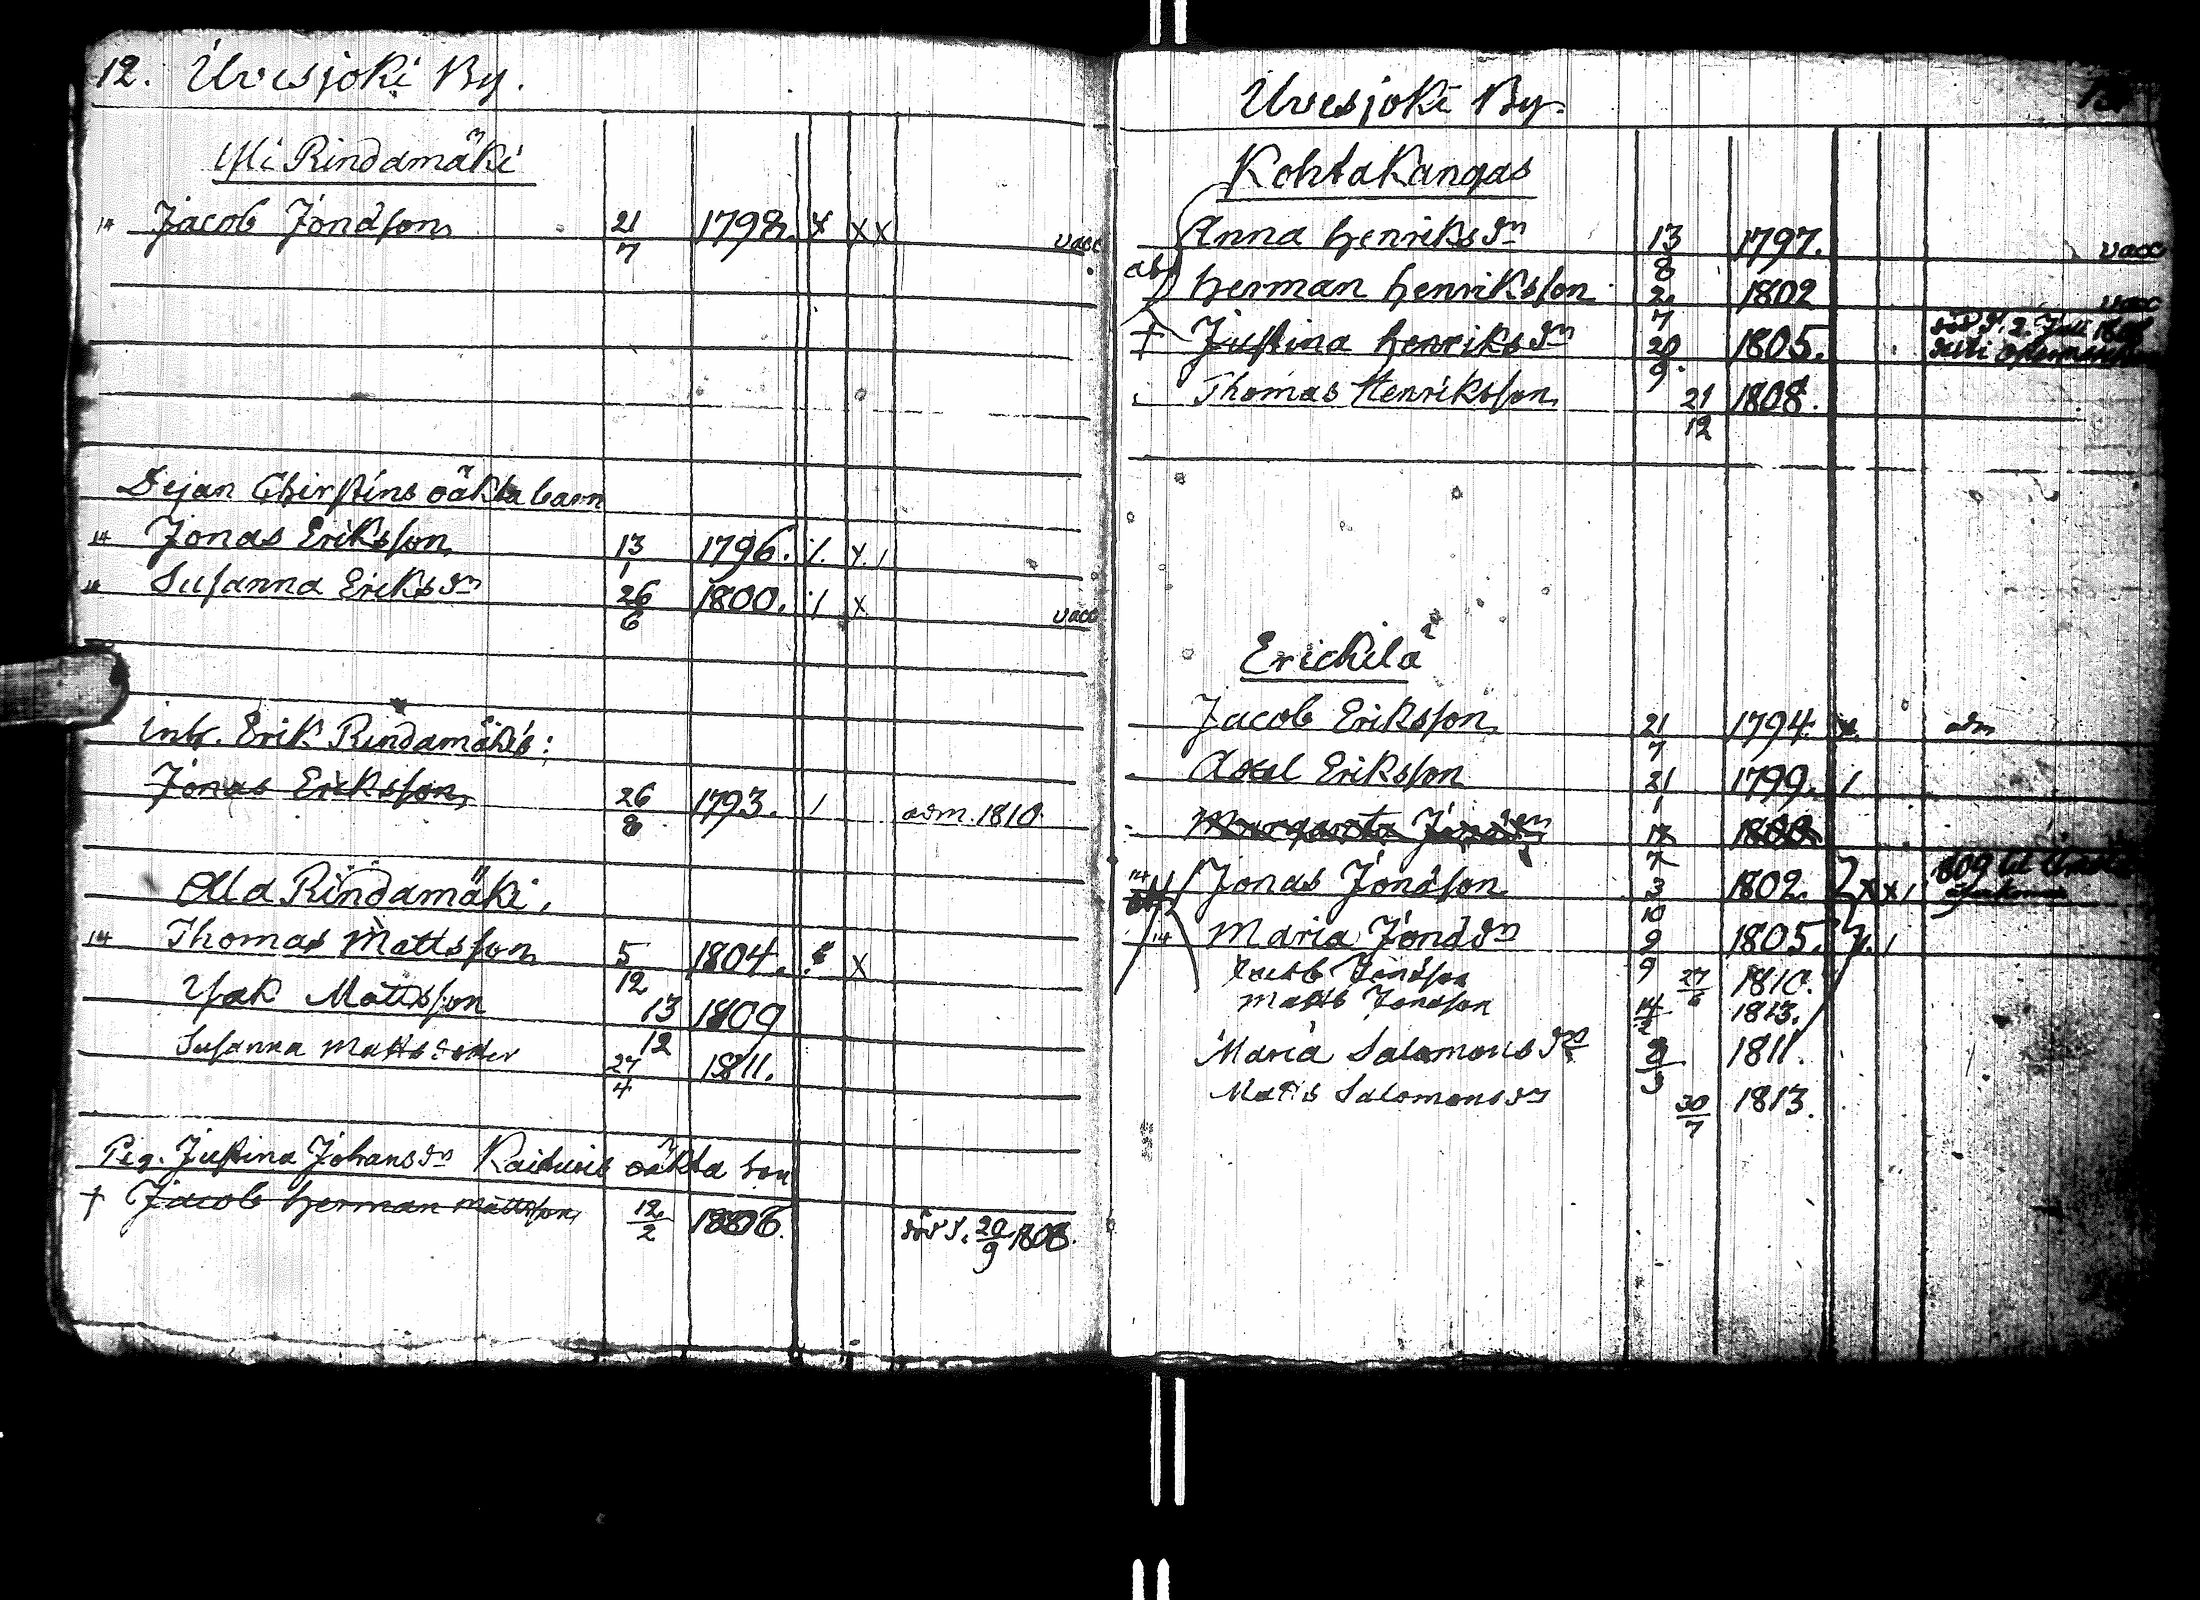 12. Üresjoki By.
Yli Rindamäki
14 Jacob Jonasson 21/7 1798. X XX vacc
Dejan Chirstins oäkta barn
14 Jonas Eriksson 13/1 1796. /. X. /
Susanna Eriksdn 26/6 1800. / X vacc
inh. Erik Rindamäkis:
Jonas Eriksson 26/8 1793. / adm. 1810.
Ala Rindamäki.
14 Thomas Mattsson 5/12 1804. X
Isak Mattsson 13/12 1809
Susanna Mattsdotter 27/4 1811.
Pig. Justina Johansdn oäkta son
† Jacob Herman Mattsson 12/2 1806. död d. 20/9 1808.
Üresjoki By.
Kohtakangas
Anna Henriksdn 13/8 1797. vacc
Herman Henriksson 2/7 1802 vacc
† Justina Henriksdn 20/9. 1805. död d. 2. Juli
Thomas Henriksson 21/12 1808.
Erickilä
Jacob Eriksson 21/7 1794. x. adm
Axel Eriksson 21/1 1799. /
Margareta Jonasdn 17/7 1800
14 Jonas Jonasson 3/10 1802. X X /
14 Maria Jonasdn 9/9 1805. /
Jacob Jonasson 27/6 1810.
Matts Jonasson 14/2 1813.
Maria Salomonsdn 1811.
Matts Salomonsdn 30/7 1813.